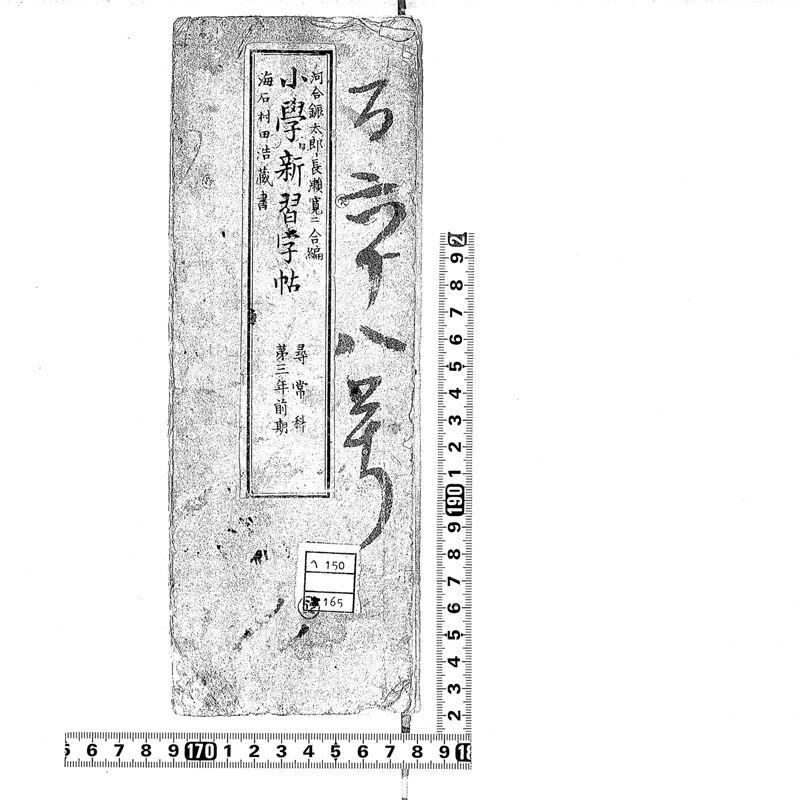 百六十八号
河合鎵太郎・長瀬寛二合編
小學新習字帖
海石村田浩蔵書
尋常科
第三年前期
へ 150
165
2
9 8 7 6 5 4 3 2 1 190 9 8 7 6 5 4 3 2
5 6 7 8 9 170 1 2 3 4 5 6 7 8 9 18